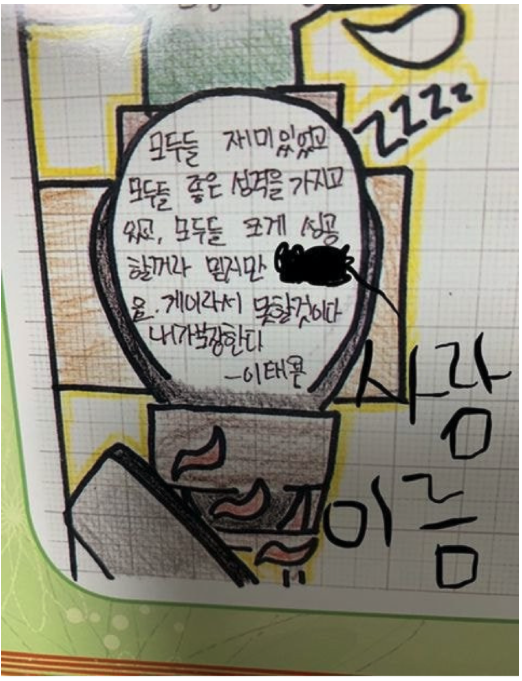 zzzz
모두들 재미있었고
모두들 좋은 성격을 가지고
있고, 모두들 크게 성공
할꺼라 믿지만
은. 게이라서 못할것이다
내가 보장한다
-이태
사람
이름